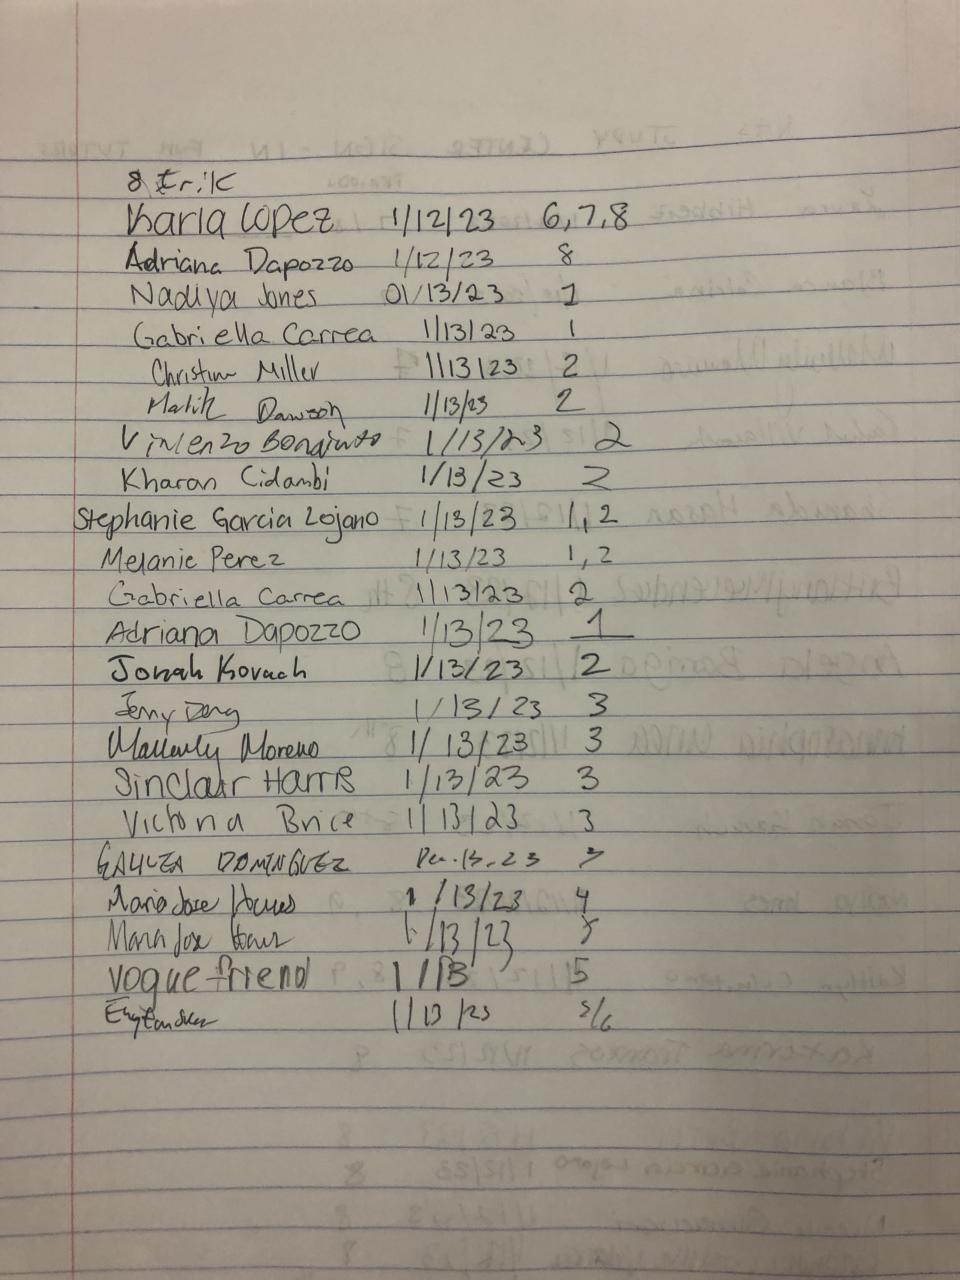 8 Erik
Karla Lopez 1/12/23 6,7,8
Adriana Dapozzo 1/12/23 8
Nadiya Jones 01/13/23 1
Gabriella Carrea 1/13/23 1
Christian Miller 1/13/23 2
Malik Dawson 1/13/23 2
Vincenzo 1/13/23 2
Kharan Cidambi 1/13/23 2
Stephanie Garcia Lojano 1/13/23 1,2
Melanie Perez 1/13/23 1,2
Gabriella Carrea 1/13/23 2
Adriana Dapozzo 1/13/23 1
Jonah Kovach 1/13/23 2
Jenny Deng 1/13/23 3
Moreno 1/13/23 3
Sinclair Harris 1/13/23 3
Victoria Brice 1/13/23 3
DOMINGUEZ 3
Maria Jose 1/13/23 4
Maria Jose 1/13/23
Vogue friend 1/13 5
1/13/23